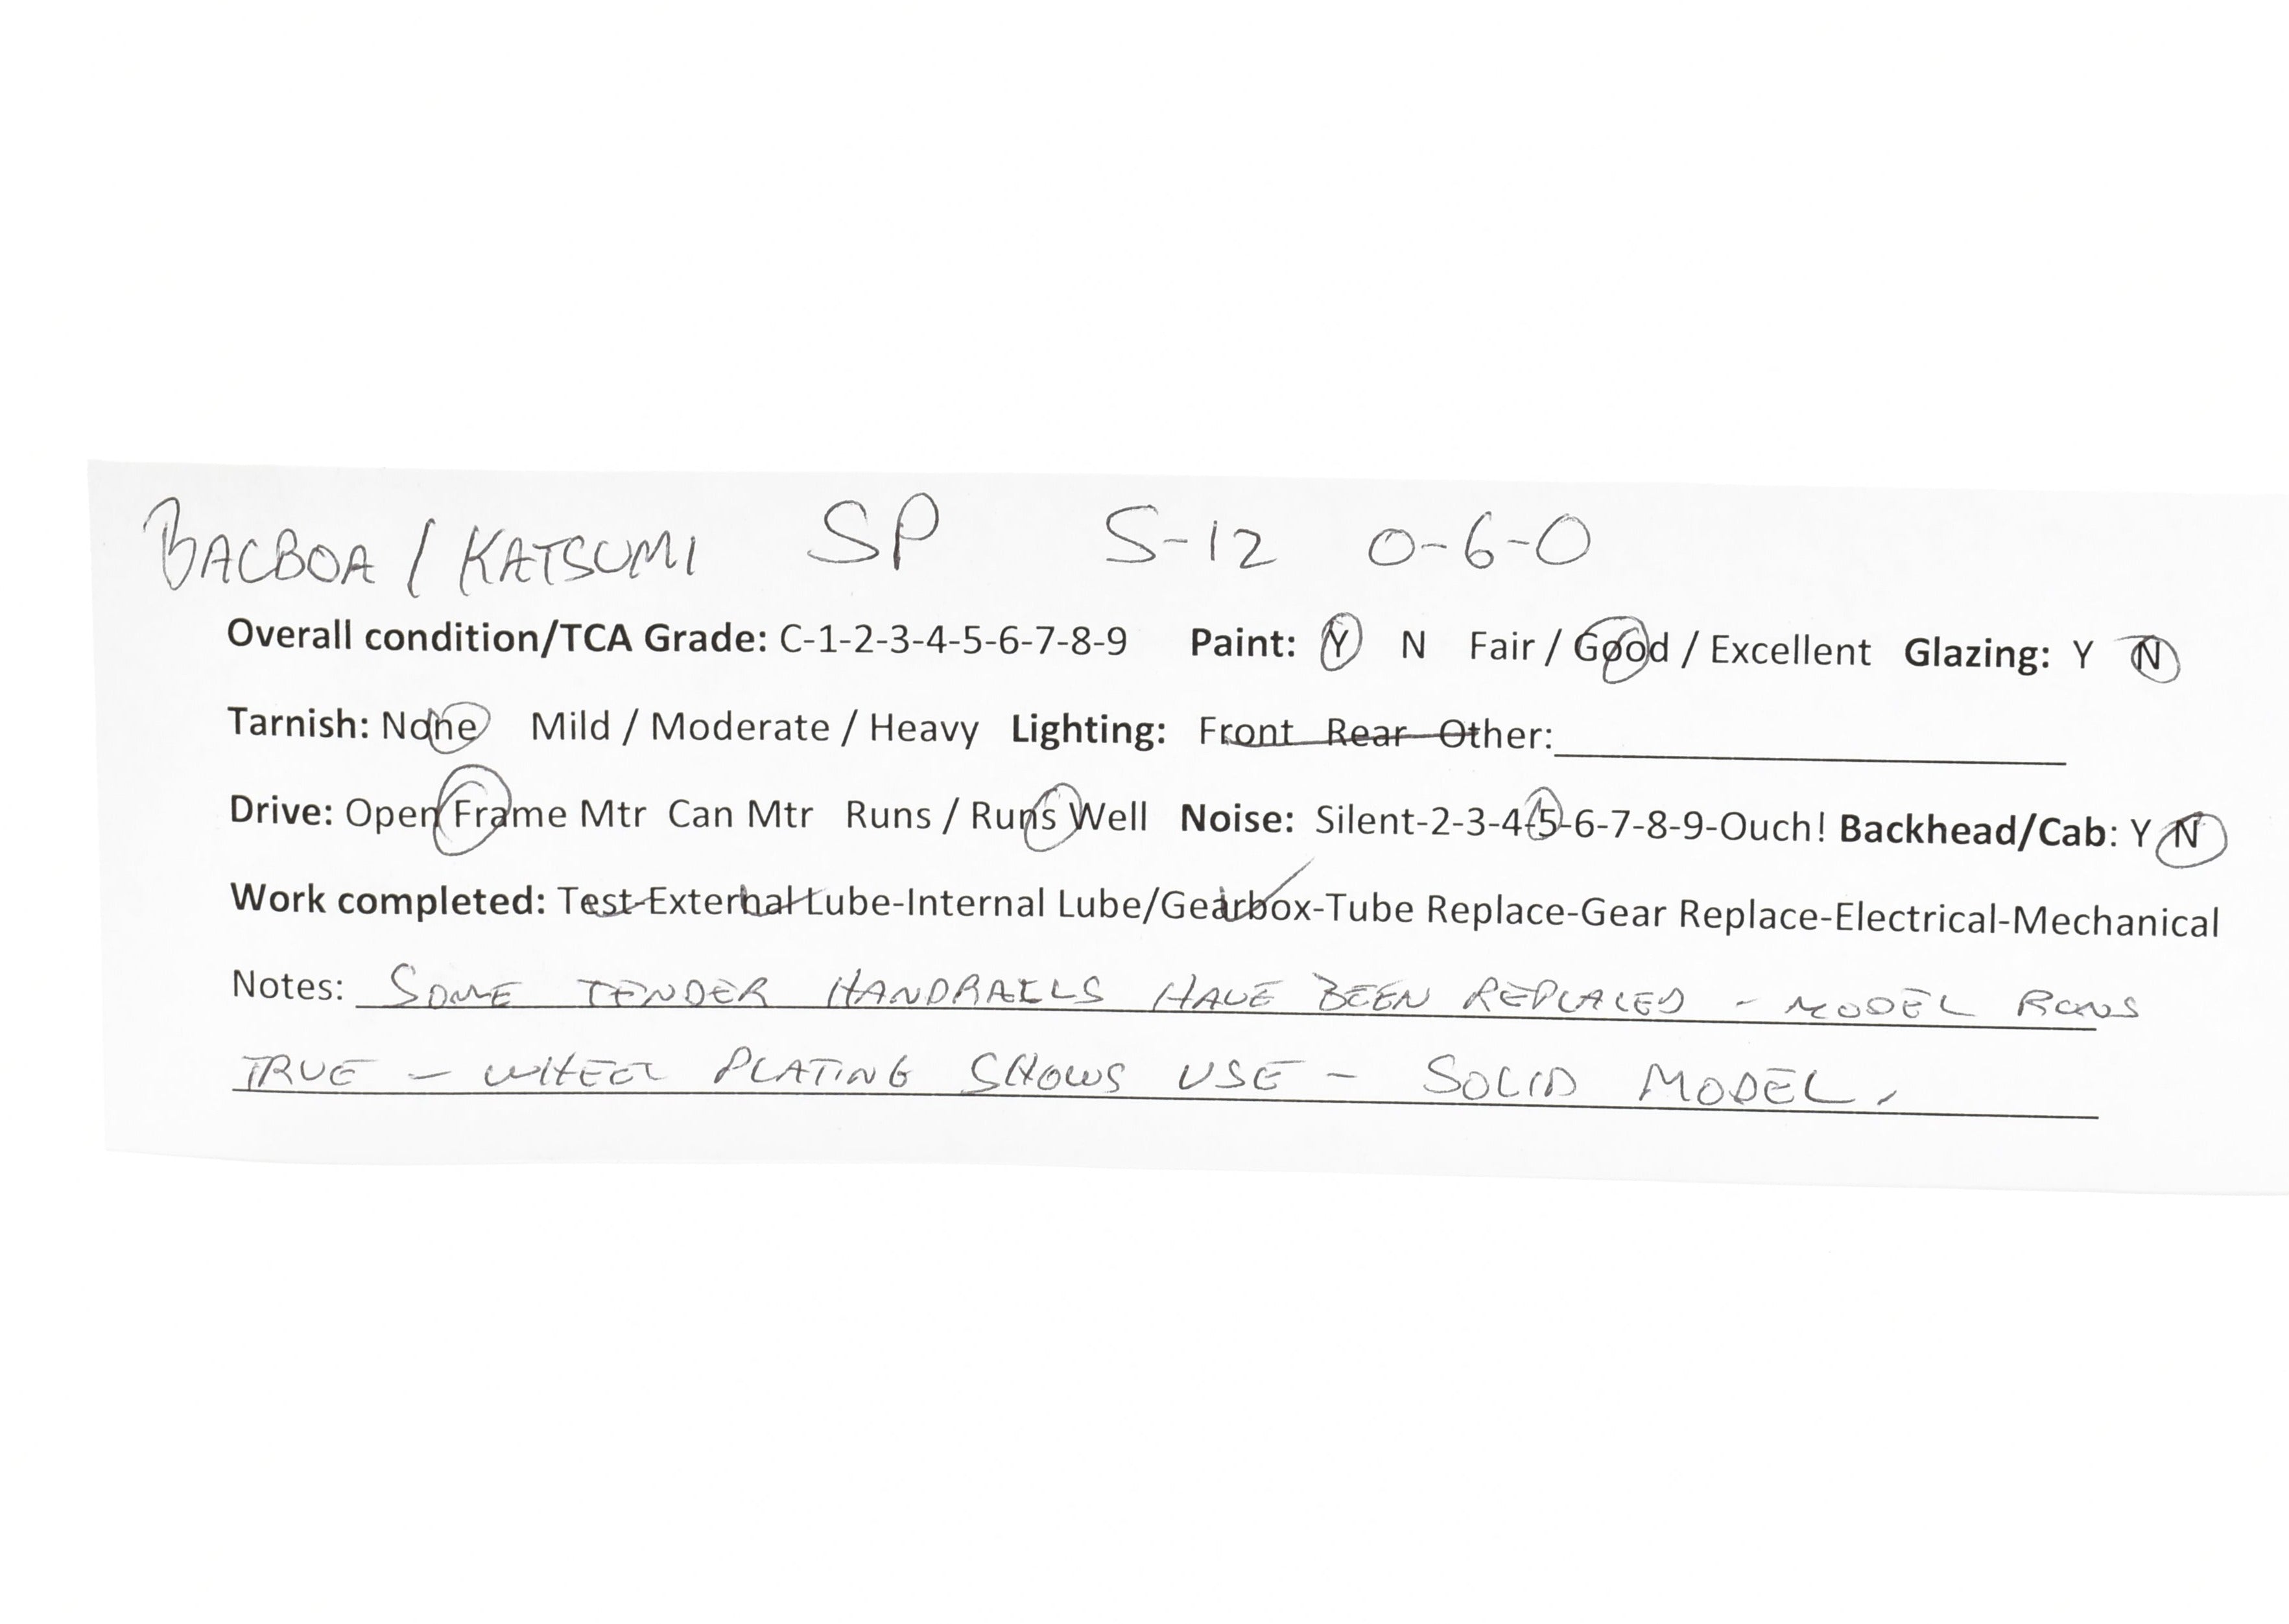 BACBOA / KATSUMI SP S-12 0-6-0
Overall condition/TCA Grade: C-1-2-3-4-5-6-7-8-9 Paint: Y N Fair / Good / Excellent Glazing: Y N
Tarnish: None Mild / Moderate / Heavy Lighting: Front Rear Other:
Drive: Open Frame Mtr Can Mtr Runs / Runs Well Noise: Silent-2-3-4-5-6-7-8-9-Ouch! Backhead/Cab: Y N
Work completed: Test-External Lube-Internal Lube/Gearbox-Tube Replace-Gear Replace-Electrical-Mechanical
Notes: SOME TENDER HANDRAILS HAVE BEEN REPLACED - MODEL RUNS
TRUE - WHEEL PLATING SHOWS USE - SOLID MODEL.